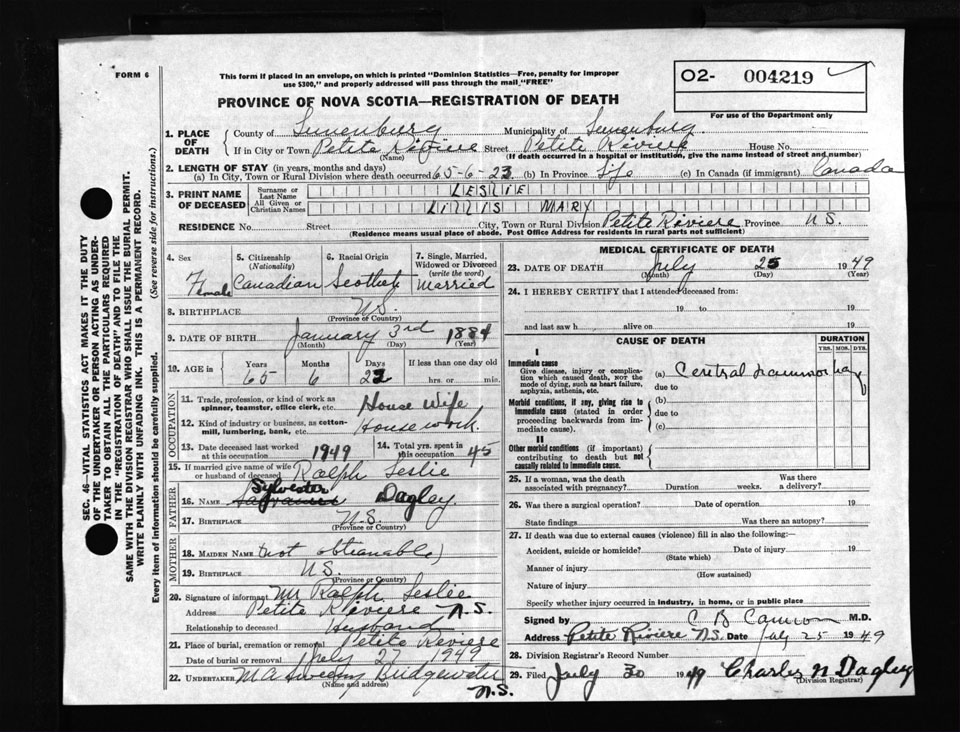 FORM 6
This form if placed in an envelope, on which is printed "Dominion Statistics—Free, penalty for improper
use $300," and properly addressed will pass through the mail "FREE"
O2- 004219
For use of the Department only
PROVINCE OF NOVA SCOTIA—REGISTRATION OF DEATH
SEC. 46—VITAL STATISTICS ACT MAKES IT THE DUTY
OF THE UNDERTAKER OR PERSON ACTING AS UNDER-
TAKER TO OBTAIN ALL THE PARTICULARS REQUIRED
IN THE "REGISTRATION OF DEATH" AND TO FILE THE
SAME WITH THE DIVISION REGISTRAR WHO SHALL ISSUE THE BURIAL PERMIT.
WRITE PLAINLY WITH UNFADING INK. THIS IS A PERMANENT RECORD.
Every item of information should be carefully supplied. (See reverse side for instructions.)
1. PLACE OF DEATH
County of Lunenburg Municipality of Lunenburg
If in City or Town Petite Riviere Street Petite Riviere House No.
(Name) (If death occurred in a hospital or institution, give the name instead of street and number)
2. LENGTH OF STAY (in years, months and days)
(a) In City, Town or Rural Division where death occurred 65-6-22 (b) In Province Life (c) In Canada (if immigrant) Canada
3. PRINT NAME OF DECEASED
Surname or Last Name LESLIE
All Given or Christian Names LILLIS MARY
RESIDENCE No. Street City, Town or Rural Division Petite Riviere Province N.S.
(Residence means usual place of abode. Post Office Address for residents in rural parts not sufficient)
4. Sex Female
5. Citizenship (Nationality) Canadian
6. Racial Origin
7. Single, Married, Widowed or Divorced (write the word) Married
8. BIRTHPLACE N.S.
(Province or Country)
9. DATE OF BIRTH January 3rd 1884
(Month) (Day) (Year)
10. AGE in Years 65 Months 6 Days 22 If less than one day old
hrs. or min.
OCCUPATION
11. Trade, profession, or kind of work as spinner, teamster, office clerk, etc. House Wife
12. Kind of industry or business, as cotton-mill, lumbering, bank, etc. House work.
13. Date deceased last worked at this occupation 1949
14. Total yrs. spent in this occupation 45
15. If married give name of wife or husband of deceased Ralph Leslie
FATHER
16. NAME Sylvester Dagley.
17. BIRTHPLACE N.S.
(Province or Country)
MOTHER
18. MAIDEN NAME (not obtianable)
19. BIRTHPLACE N.S.
(Province or Country)
20. Signature of informant Mr Ralph Leslie
Address Petite Riviere N.S.
Relationship to deceased Husband
21. Place of burial, cremation or removal Petite Reviere
Date of burial or removal July 27 1949
22. UNDERTAKER M A Sweeny Bridgewater
(Name and address) N.S.
MEDICAL CERTIFICATE OF DEATH
23. DATE OF DEATH July 25 1949
(Month) (Day) (Year)
24. I HEREBY CERTIFY that I attended deceased from:
19 to 19
and last saw h alive on 19
CAUSE OF DEATH DURATION
YRS. MOS. DYS.
I
Immediate cause
Give disease, injury or complication which caused death, not the mode of dying, such as heart failure, asphyxia, asthenia, etc.
(a)
due to
Morbid conditions, if any, giving rise to immediate cause (stated in order proceeding backwards from immediate cause).
(b)
due to
(c)
II
Other morbid conditions (if important) contributing to death but not causally related to immediate cause.
25. If a woman, was the death associated with pregnancy? Duration weeks. Was there a delivery?
26. Was there a surgical operation? Date of operation 19
State findings Was there an autopsy?
27. If death was due to external causes (violence) fill in also the following:—
Accident, suicide or homicide? Date of injury 19
(State which)
Manner of injury
(How sustained)
Nature of injury
Specify whether injury occurred in industry, in home, or in public place
Signed by C B Cameron M.D.
Address Petite Riviere N.S. Date July 25 1949
28. Division Registrar's Record Number
29. Filed July 30 1949 Charles N Dagley
(Division Registrar)